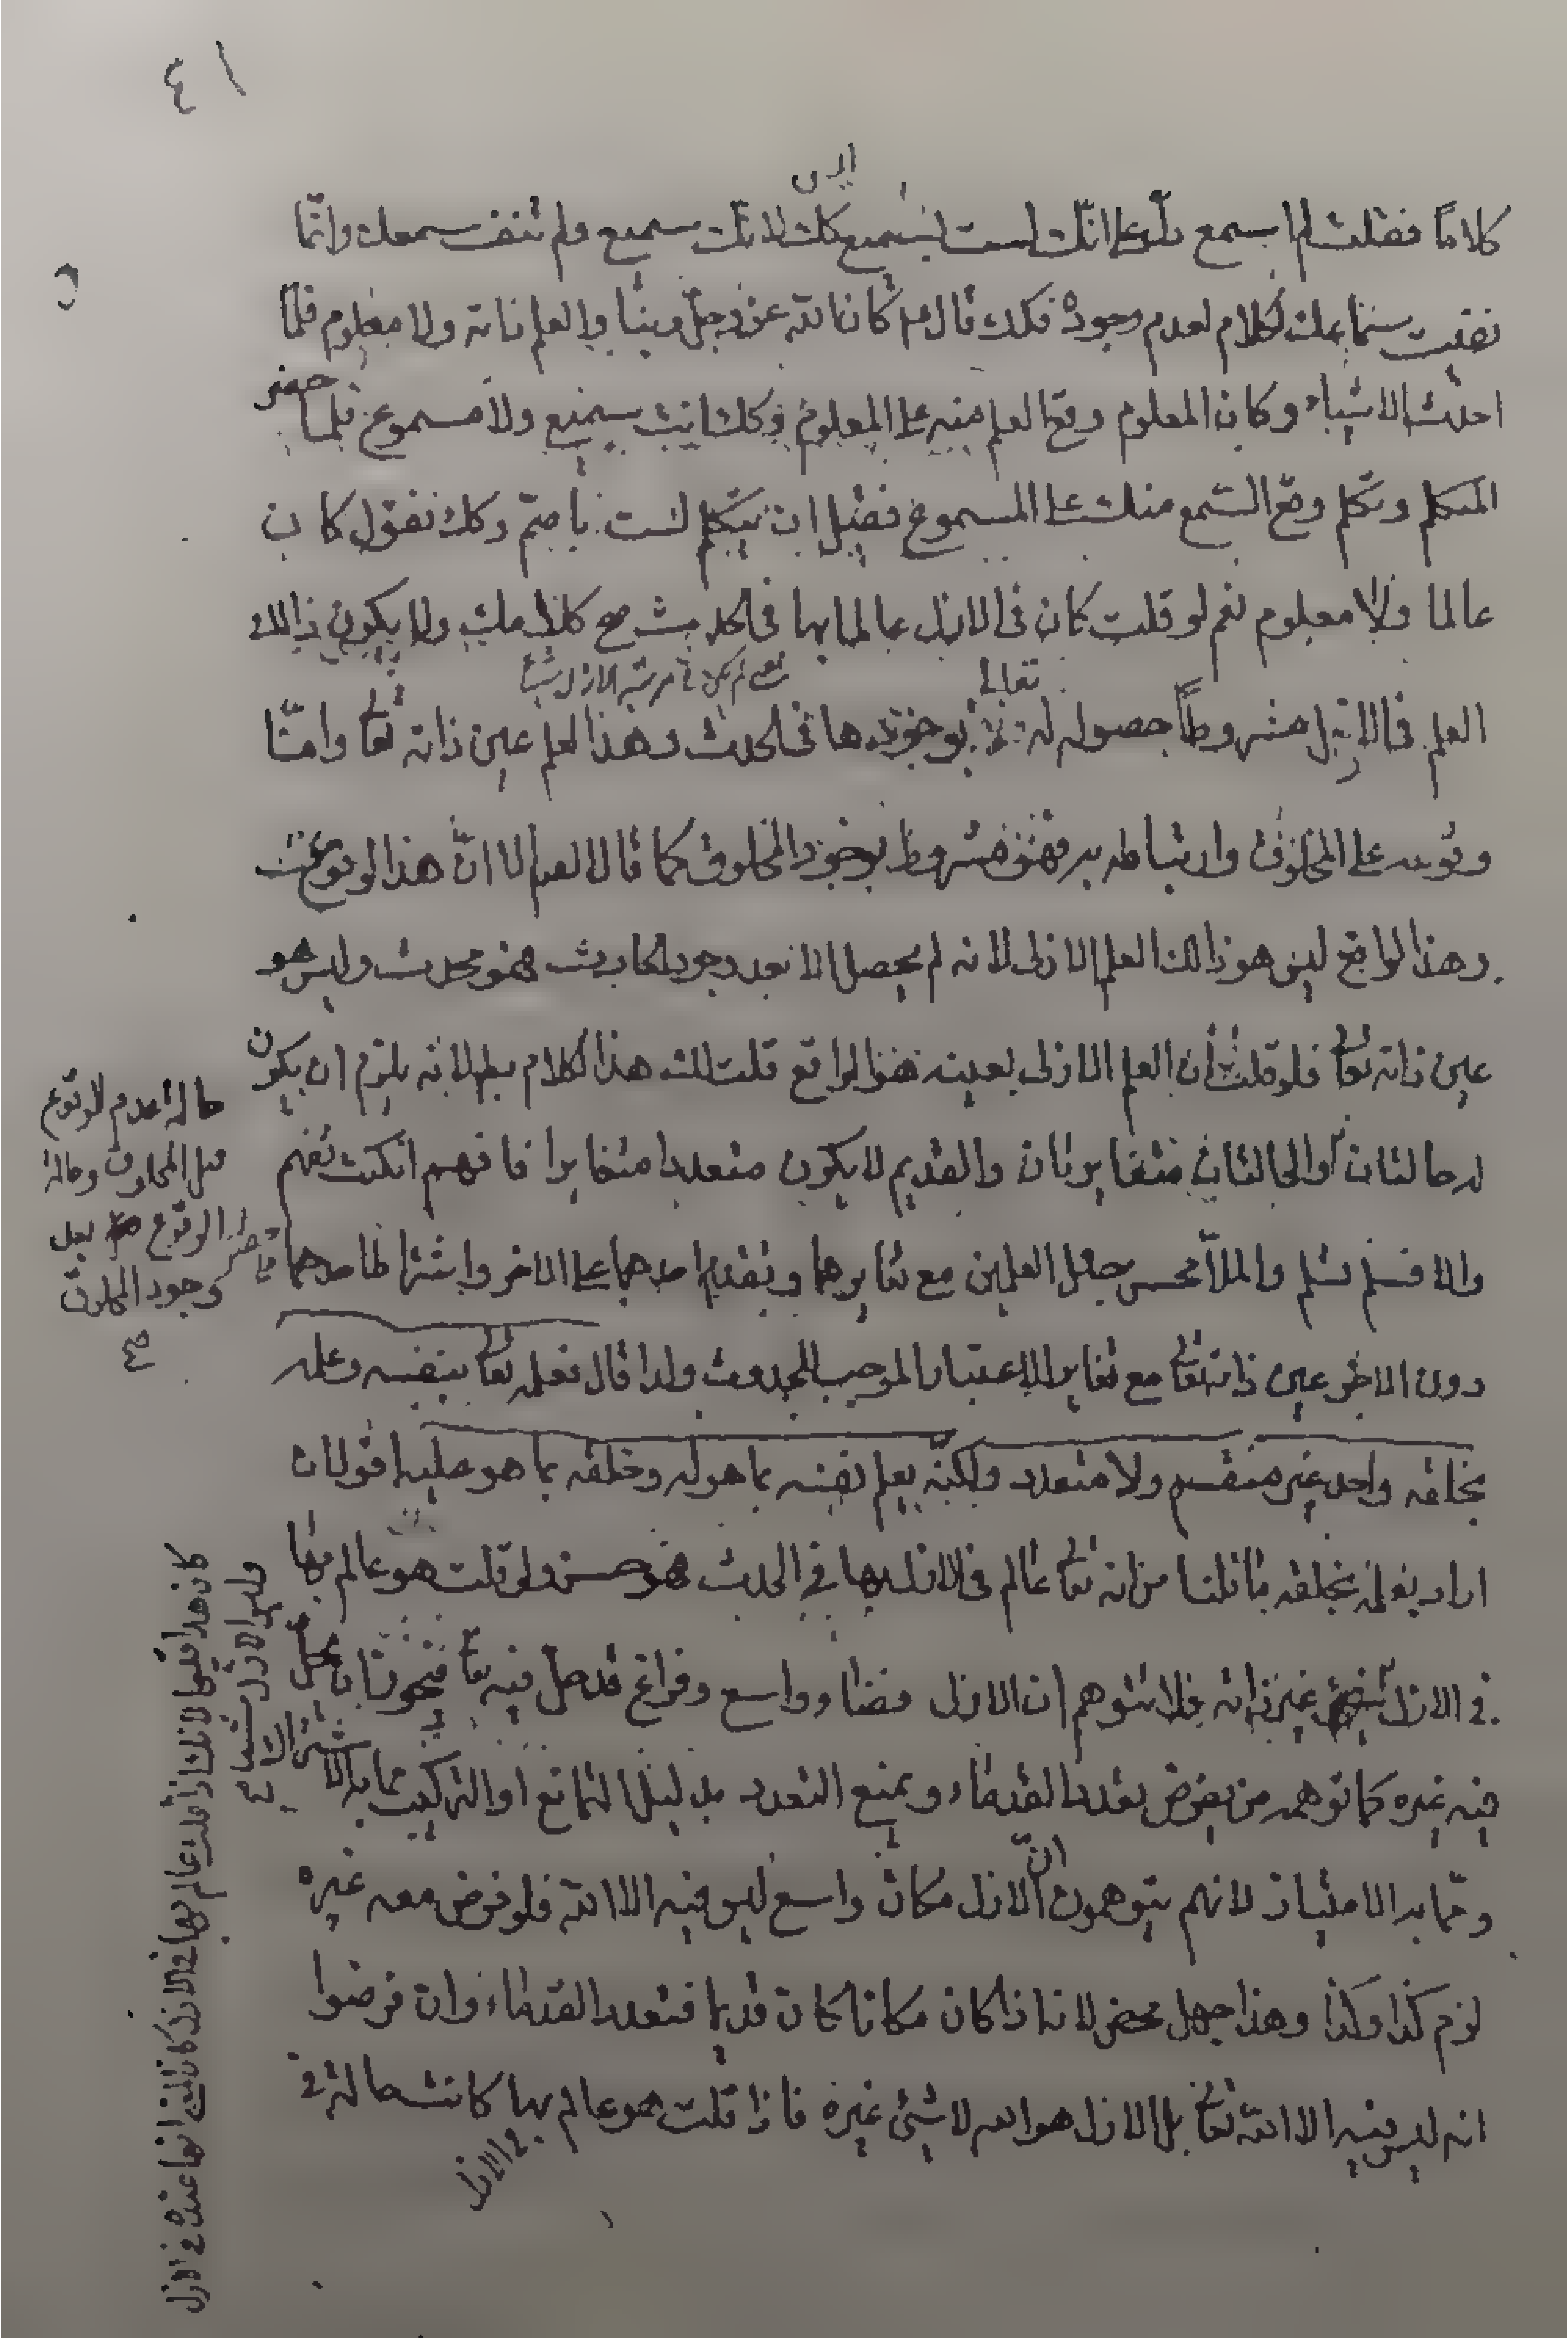 ٤١
كلاما فقلت لم اسمع دل على انك لست بسميع كلا لانك سميع ولم تنف سمعك وانما
نفيت سماعك لكلام لعدم وجوده فكك قال ع كان الله عز وجل ربنا والعلم ذاته ولا معلوم فلما
احدث الاشياء وكان المعلوم وقع العلم منه على المعلوم وكك انت سميع ولا مسموع فلما حضر
المتكلم وتكلم وقع السمع منك على المسموع فقبل ان يتكلم لست باصم وكك نقول كان
عالما ولا معلوم نعم لو قلت كان فى الازل عالما بها فى الحدث صح كلامك ولا يكون ذالك
تعالى
العلم فى الازل مشروطا حصوله له بوجودها فى الحدث وهذا العلم عين ذاته تعالى وامّا
وقوعه على المخلوق وارتباطه به فهو مشروط بوجود المخلوق كما قال العلم الا ان هذا الوقوع
وهذا الواقع ليس هو ذالك العلم الازلى لانه لم يحصل الا بعد وجود الحادث فهو محدث وليس هو
عين ذاته تعالى فلو قلت ان العلم الازلى بعينه هو الواقع قلت لك هذا الكلام باطل لانه يلزم ان يكون
له حالتان والحالتان متغايرتان والقديم لا يكون متعددا متغايرا فافهم ان كنت تفهم
والا فسلم تسلم والملا محسن جعل العلمين مع تغايرهما وتقدم احدهما على الاخر واشتراط احدهما
دون الاخر عين ذاته تعالى مع تغاير الاعتبار الموجب للحدوث ولذا قال فعلمه تعالى بنفسه وعلمه
بخلقه واحد غير منقسم ولا متعدد ولكنه يعلم نفسه بما هو له وخلقه بما هو عليه اقول ان
اراد بعلمه بخلقه ما قلنا من انه تعالى عالم فى الازل بها في الحدث فهو حسن ولو قلت هو عالم بها
في الازل غير ذاته فلا تتوهم ان الازل فضاء وواسع وفراغ قد حل فيه تعالى فيجوز ان يحل
فيه غيره كما توهمه من يفرض تعدد القدماء ويمنع التعدد بدليل التمانع او التركيب مما به الاشتراك
ومما به الامتياز لانهم يتوهمون انّ الازل مكان واسع ليس فيه الا الله فلو فرض معه غيره
لزم كذا وكذا وهذا جهل محض لانه اذا كان مكانا كان قديما فتعدد القدماء وان فرضوا
انه ليس فيه الا الله تعالى بل الازل هو الله لا شيئ غيره فاذا قلت هو عالم بها كانت حالة في
في الازل
حالة عدم الوقوع
قبل المخلوق وحالة
الوقوع بعد
وجود المخلوق
صح
كان هذا لانك اذا قلت عالم بها في الازل كان المعنى انها عنده في الازل
وليس في الازل